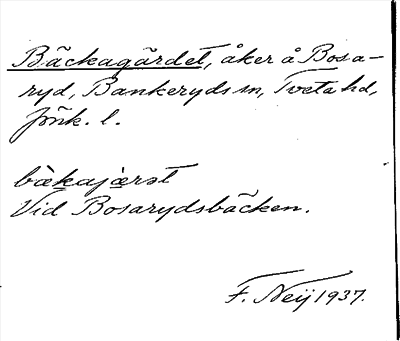 Bäckagärdet, åker å Bosa-
ryd, Bankeryds sn, Tveta hd,
Jönk. l.
bäkajærət
Vid Bosarydsbäcken.
F. Neij 1937.